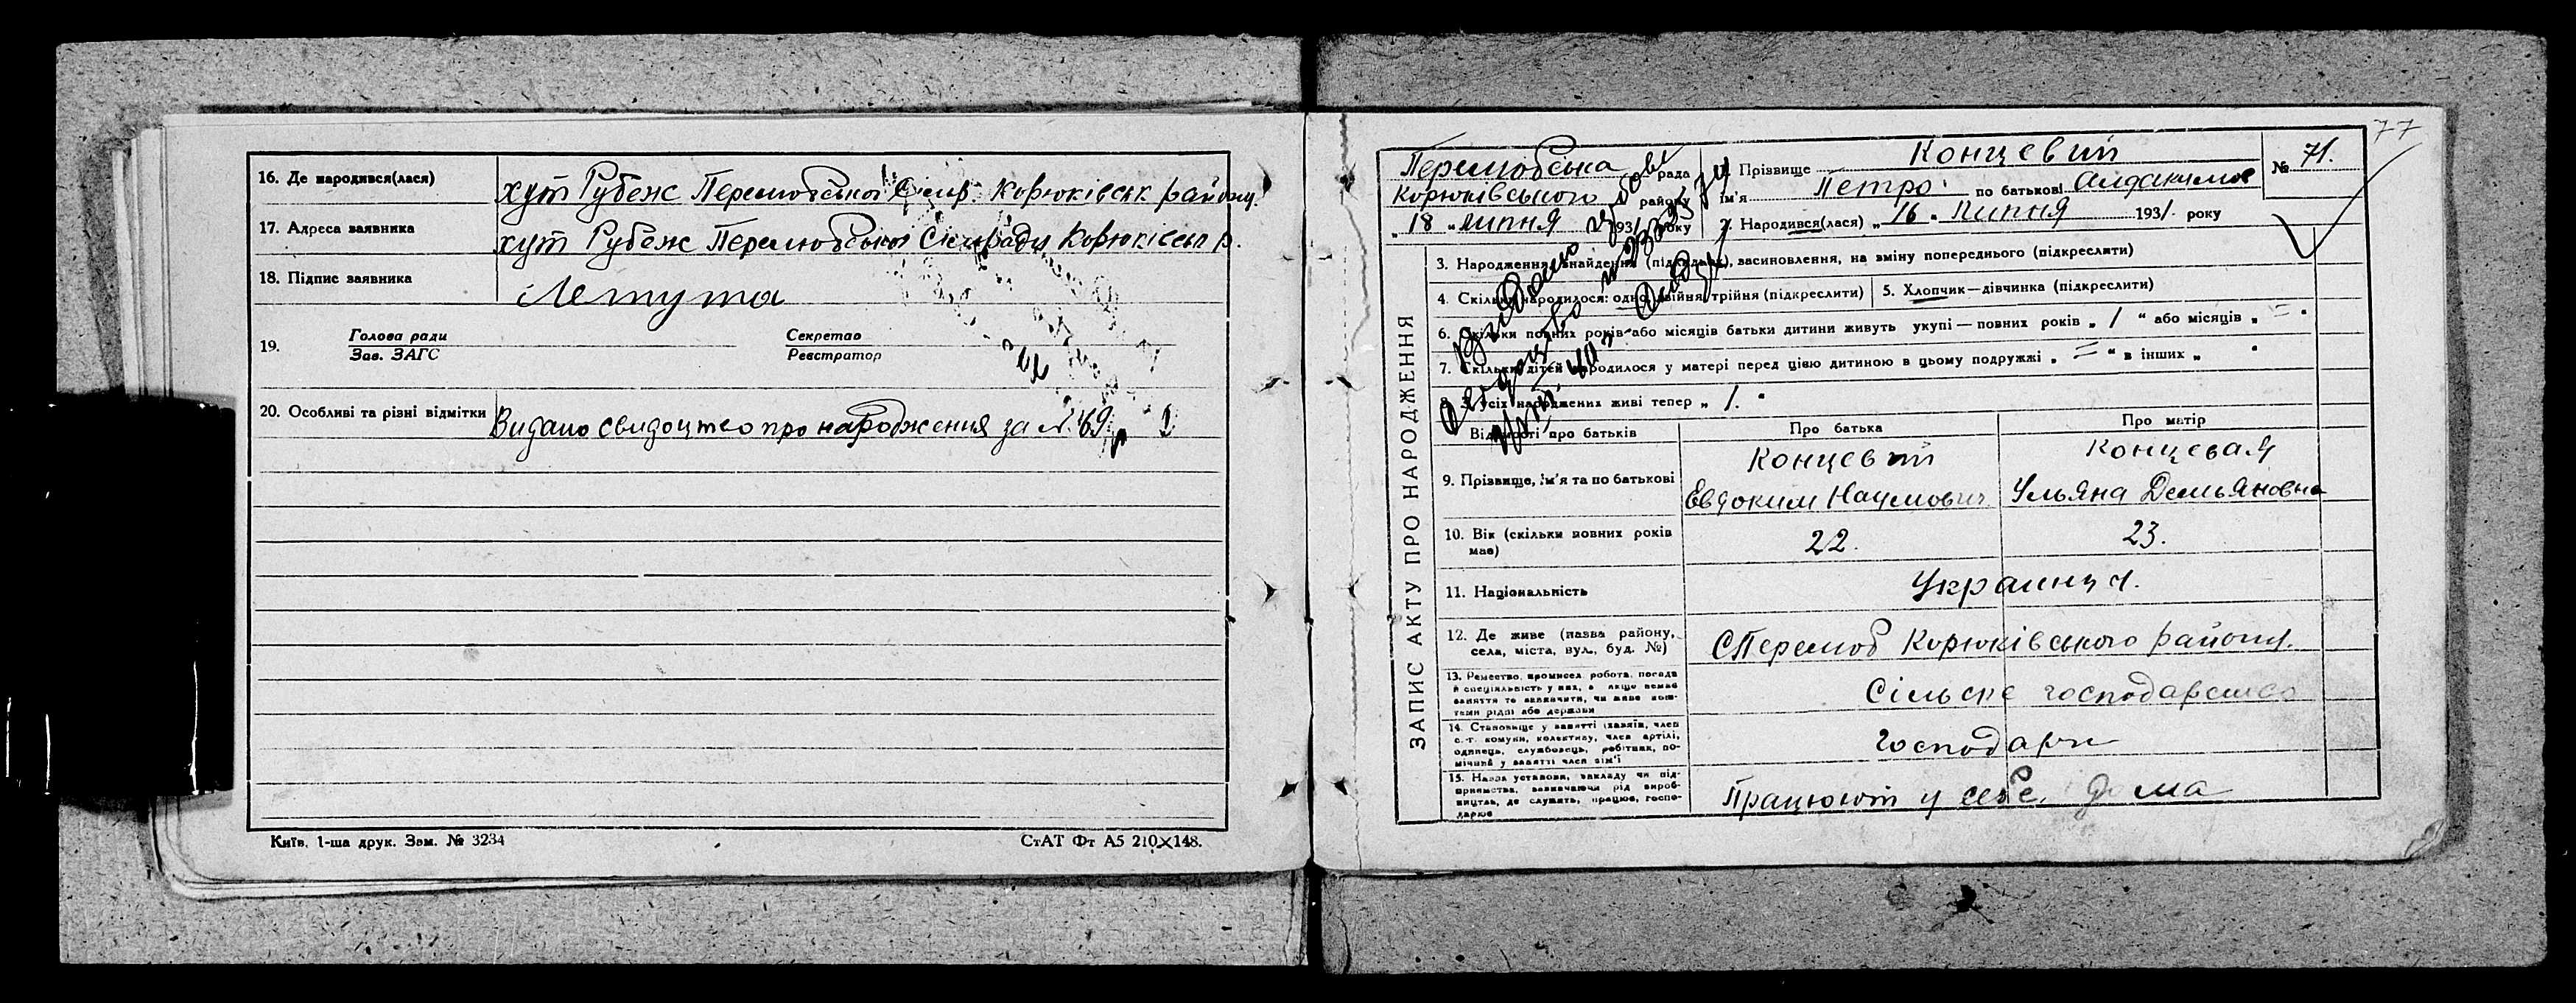 16. Де народився(лася) хут Рубеж Перелюбської Сілр. Корюківськ району.
17. Адреса заявника хут Рубеж Перелюбської Сілради Корюківськ р.
18. Підпис заявника
19. Голова ради Секретар
Зав. ЗАГС Реєстратор
20. Особливі та різні відмітки Видано свидоцтво про народження за №69
Київ, 1-ша друк. Зам. № 3234 СтАТ Фт А5 210×148.
77
Перелюбська рада
Корюківського району
„ 18 „ липня 1931 року
Прізвище Концевий
Ім'я Петро по батькові
№ 71.
2. Народився(лася) „ 16 „ Липня 1931 року
Видано
свідоцтво
ЗАПИС АКТУ ПРО НАРОДЖЕННЯ
3. Народження, знайдення (підкидька), засиновлення, на зміну попереднього (підкреслити)
4. Скільки народилося: одно, двійня, трійня (підкреслити) 5. Хлопчик—дівчинка (підкреслити)
6. Скільки повних років або місяців батьки дитини живуть укупі — повних років „ 1 “ або місяців „ = “
7. Скільки дітей народилося у матері перед цією дитиною в цьому подружжі „ = “ в інших „ “
8. З усіх народжених живі тепер „ 1. “
Відомості про батьків Про батька Про матір
9. Прізвище, ім'я та по батькові Концевий Концевая
Евдоким Наумович Ульяна Демьяновна
10. Вік (скільки повних років має) 22. 23.
11. Національність Украинци.
12. Де живе (назва району, села, міста, вул., буд. №) С Перелюб Корюківського району.
13. Ремество, промисел, робота, посада й спеціяльність у них, а якщо немає заняття то зазначити, чи живе коштами рідні або держави Сільске господарство
14. Становище у занятті (хазяїн, член с.-г. комуни, колективу, член артілі, одинець, службовець, робітник, помічний у занятті член сім'ї господари
15. Назва установи, закладу чи підприємства, зазначаючи рід виробництва, де служить, працює, господарює Працюют у себе дома